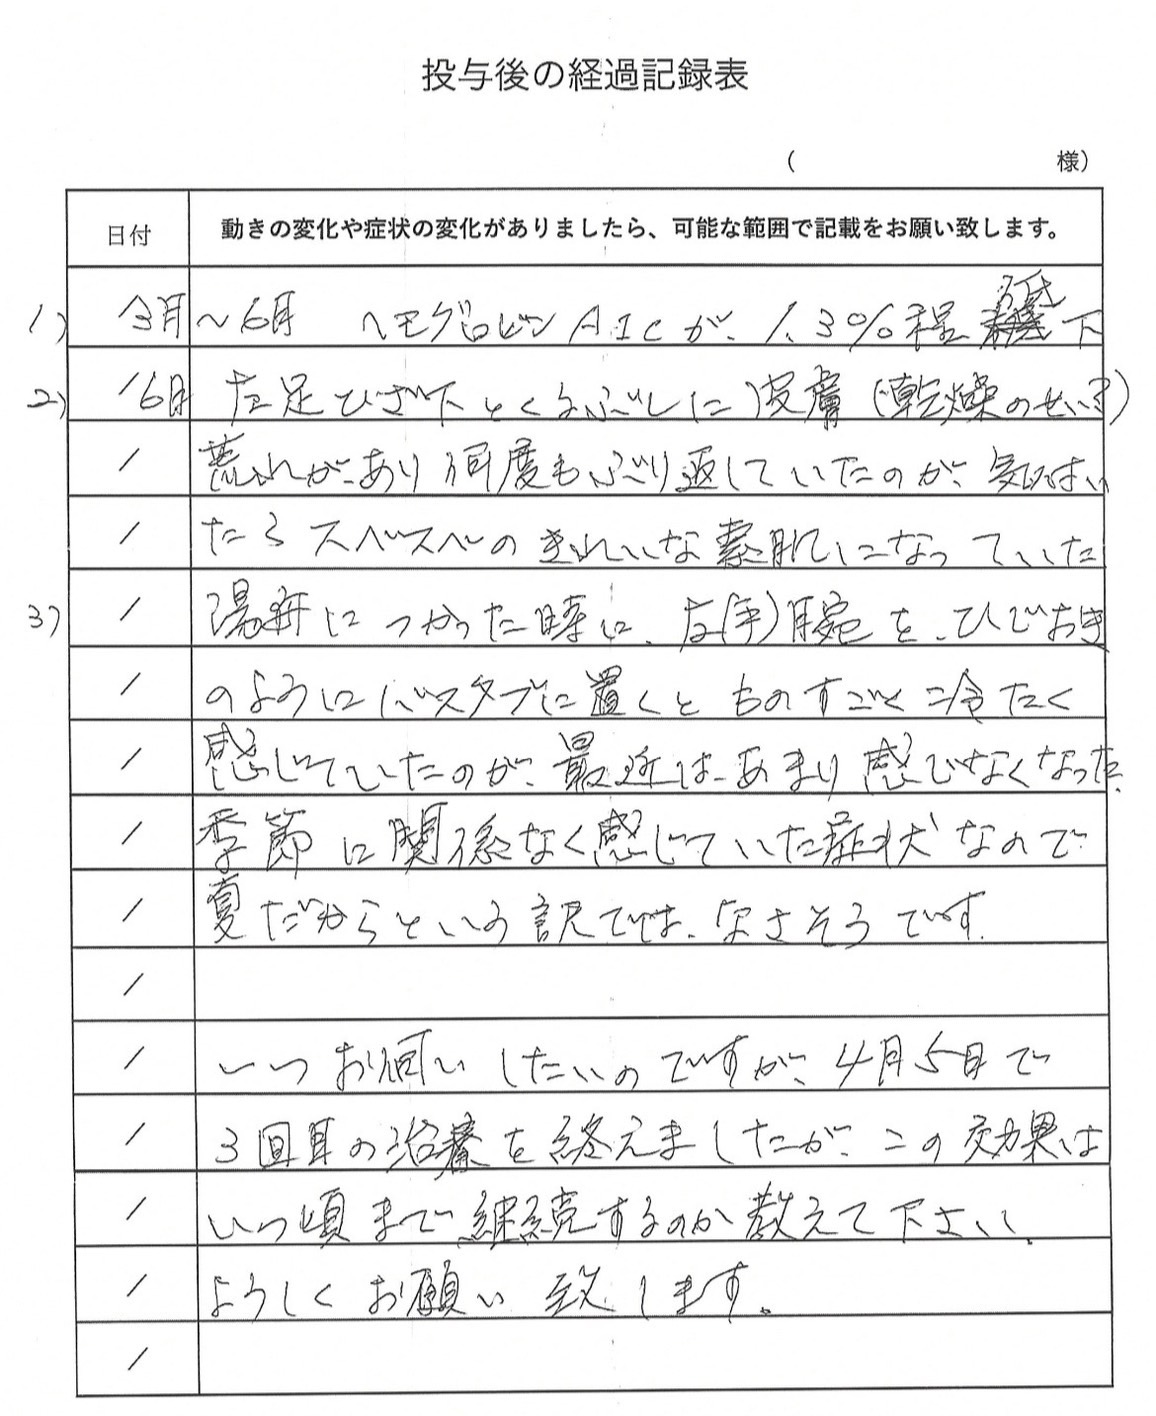 投与後の経過記録表
( 様)
日付 動きの変化や症状の変化がありましたら、可能な範囲で記載をお願い致します。
1) 3月 〜6月 ヘモグロビンA1cが、1.3%程 低下
2) 6月 左足ひざ下とくるぶしに皮膚(乾燥のせい?)
/ 荒れがあり何度もぶり返していたのが、気がつい
/ たらスベスベのきれいな素肌になっていた
3) / 湯舟につかった時に、左(手)腕を、ひじおき
/ のようにバスタブに置くとものすごく冷たく
/ 感じていたのが、最近はあまり感じなくなった。
/ 季節に関係なく感じていた症状なので
/ 夏だからという訳では、なさそうです。
/
/ 1つお伺いしたいのですが、4月5日で
/ 3回目の治療を終えましたが、この効果は
/ いつ頃まで継続するのか教えて下さい。
/ よろしくお願い致します。
/